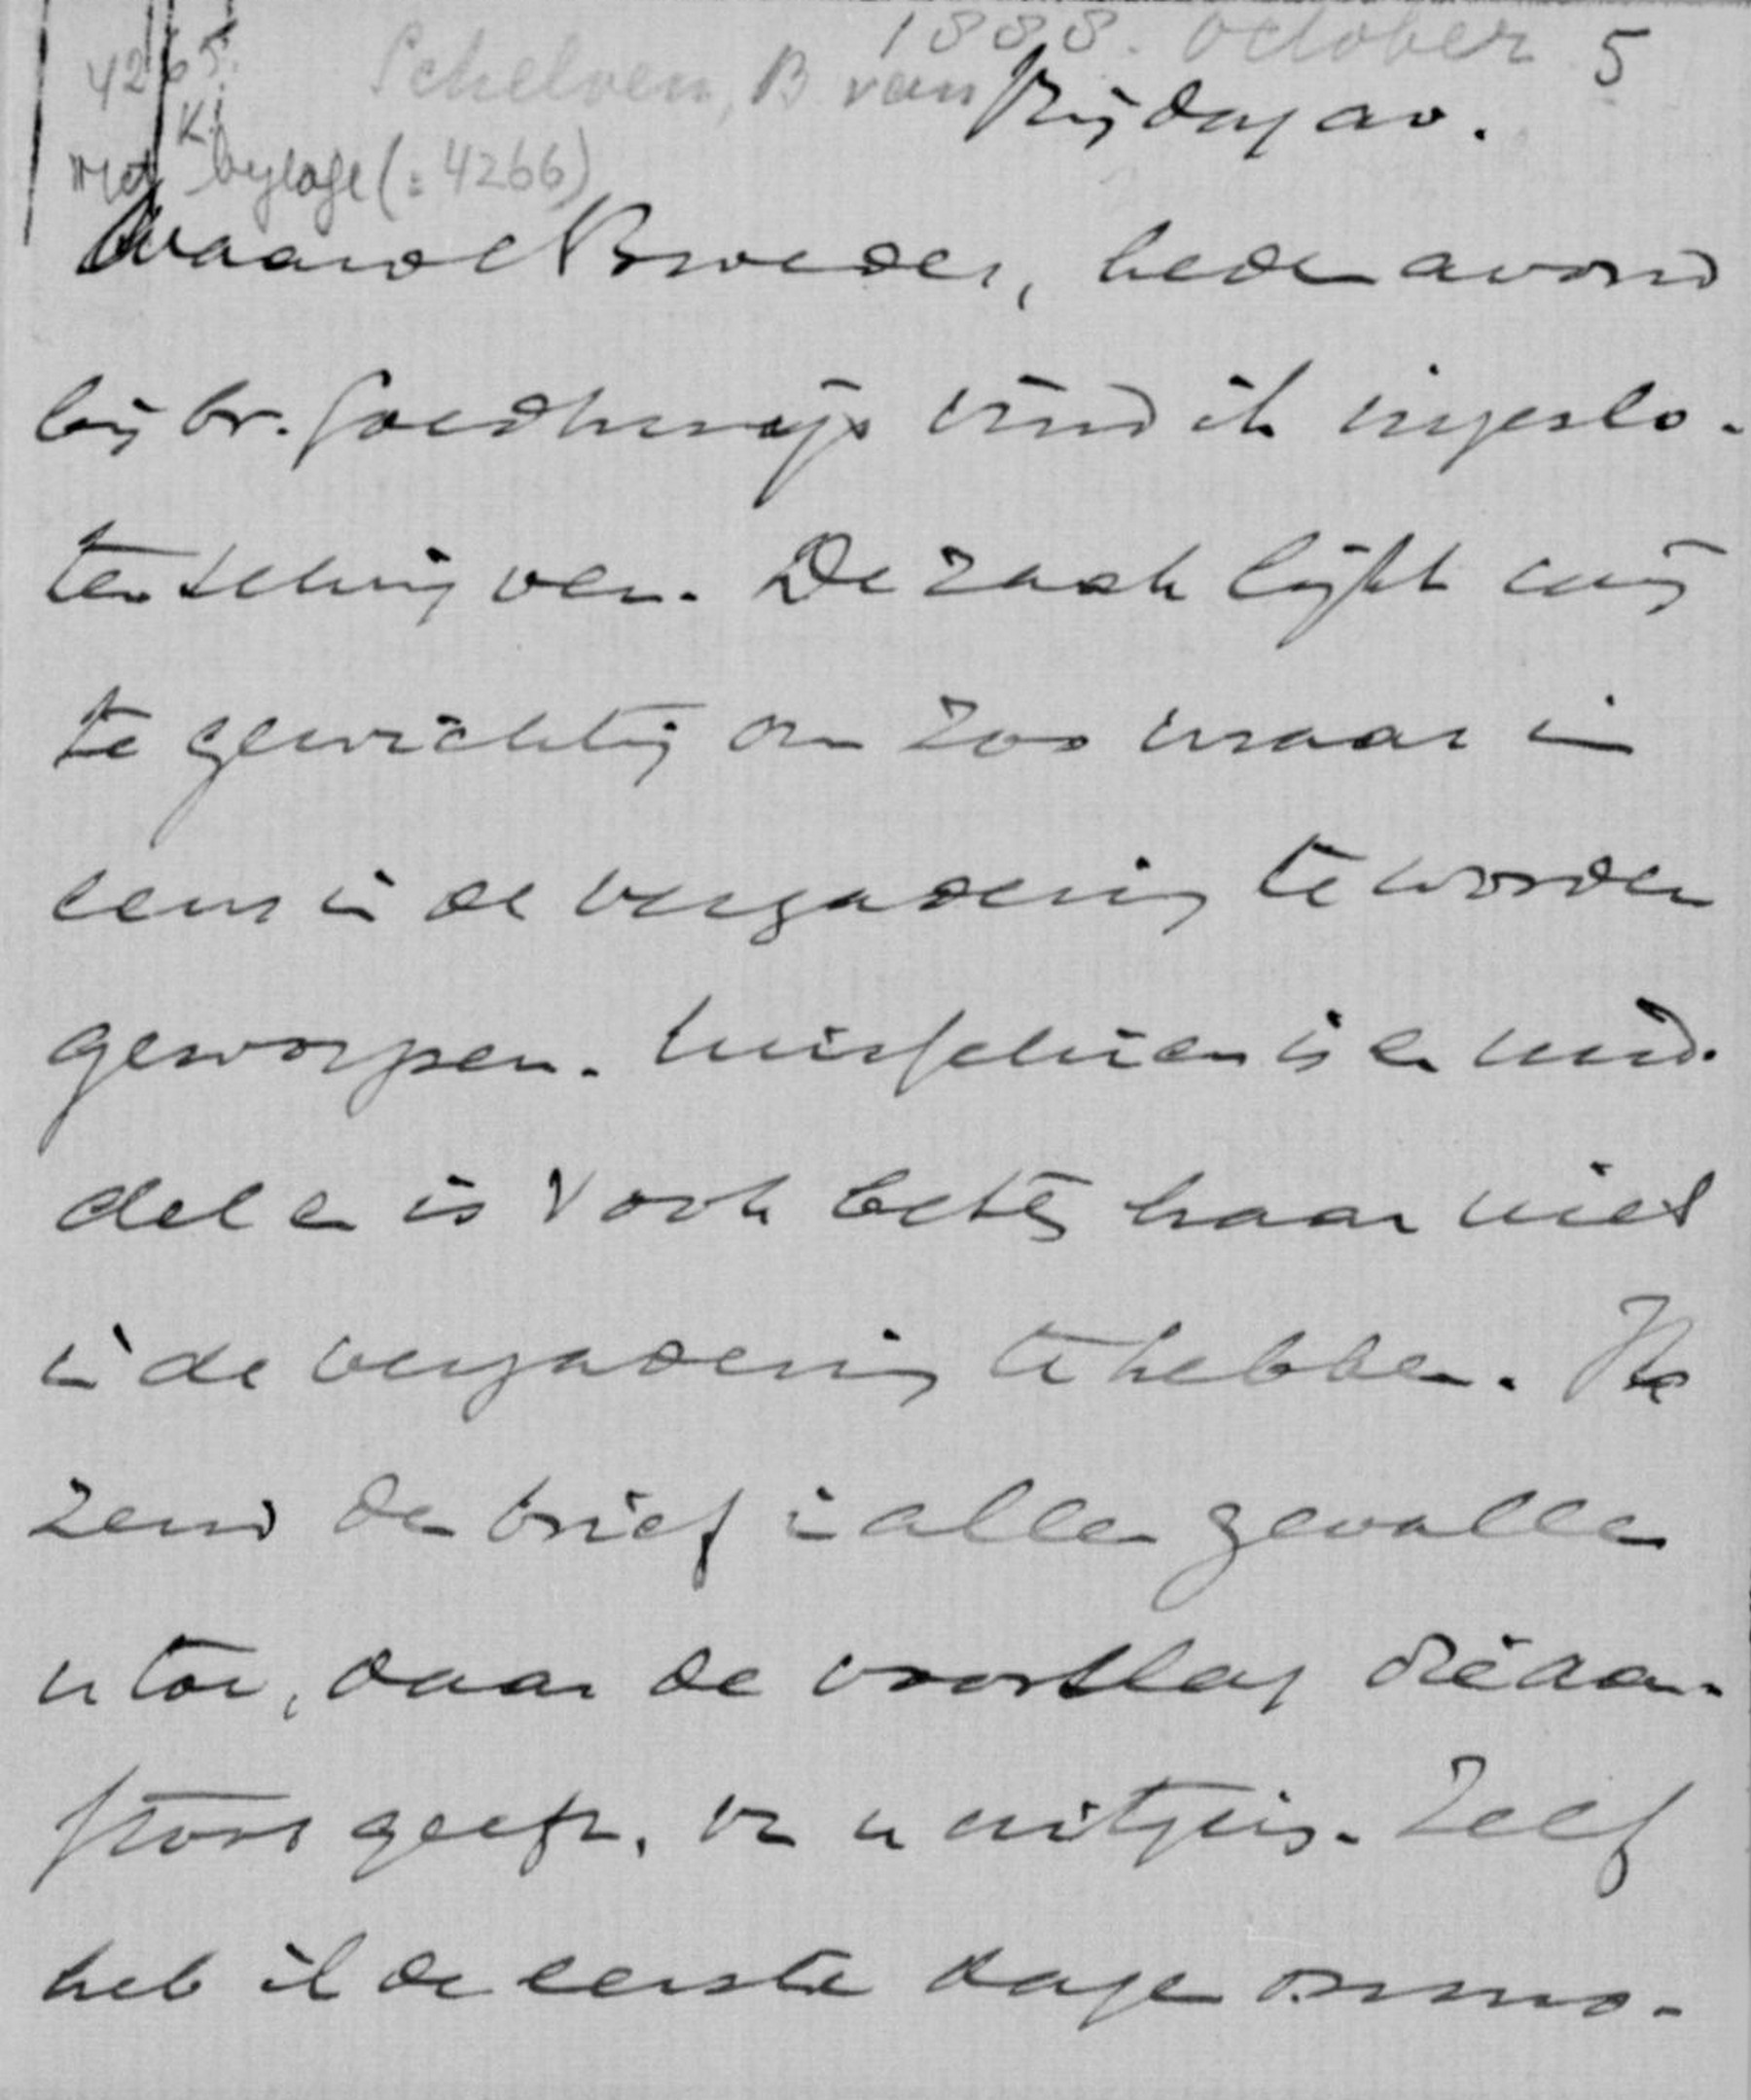 1888. October 5
4265.
Schelven, B van
Vrijdag av.
K.
met bijlage (: 4266)
Waarde Broeder, heden avond
bij br. vind ik ingeslo-
ten schrijven. De zaak lijkt mij
te gewichtig om zoo maar in
eens in de vergadering te worden
geworpen. Misschien is er mid-
del en is 't ook beter haar niet
in de vergadering te hebben. Ik
zend den brief in allen gevalle
u toe, daar de voorslag die aan-
stoot geeft, van u uitging. Zelf
heb ik de eerste dagen onmo-